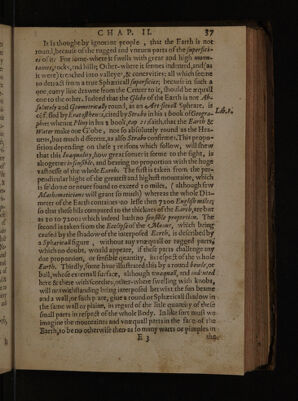 CHAP. II. 37
It is thought by ignorant people, that the Earth is not
round, because of the rugged and vneuen parts of the superfici-
es of it: For some-where it swells with great and high moun-
taines, rockes, and hills; Other-where it seemes indented, and (as
it were) trenched into valleyes, & concavities: all which seeme
to detract from a true Sphæricall superficies; because in such a
one, euery line drawne from the Center to it, should be æquall
one to the other. Indeed that the Globe of the Earth is not Ab-
solutely and Geometrically round, as an Airy small Sphære, is
confessed by Eratosthenes, cited by Strabo in his 1 booke of Geogra-
Lib. 1.
phie: whence Pliny in his 2 booke, cap. 2 saith, that the Earth &
Water make one Globe, not so absolutely round as the Hea-
uens, but much different, as also Strabo confirmes. This propo-
sition depending on these 3 reasons which follow, will shew
that this Inæquality, how great soeuer it seeme to the sight, is
altogether insensible, and bearing no proportion with the huge
vastnesse of the whole Earth. The first is taken from the per-
pendicular hight of the greatest and highest mountaine, which
is seldome or neuer found to exceed 10 miles, (although few
Mathematicians will grant so much) whereas the whole Dia-
meter of the Earth containes no lesse then 7200 English miles;
so that these hils compared to the thicknes of the Earth, are but
as 10 to 7200: which indeed hath no sensible proportion. The
second is taken from the Ecclipse of the Moone, which being
caused by the shadow of the interposed Earth, is described by
a Sphæricall figure; without any vnæquall or rugged parts,
which no doubt, would appeare, if these parts challenge any
due proportion, or sensible quantity, in respect of the whole
Earth. Thirdly, some haue illustrated this by a round boule, or
ball, whose externall surface, although vnæquall, and indented
here & there with scotches, other-where swelling with knobs,
will notwithstanding being interposed betwixt the sun beame
and a wall, or such place, giue a round or Sphæricall shadow in
the same wall or plaine, in regard of the little quantity of these
small parts in respect of the whole Body. In like sort must we
imagine the mountaines and vnæquall parts in the face of the
Earth, to be no otherwise then as so many warts or pimples in
E 3 the